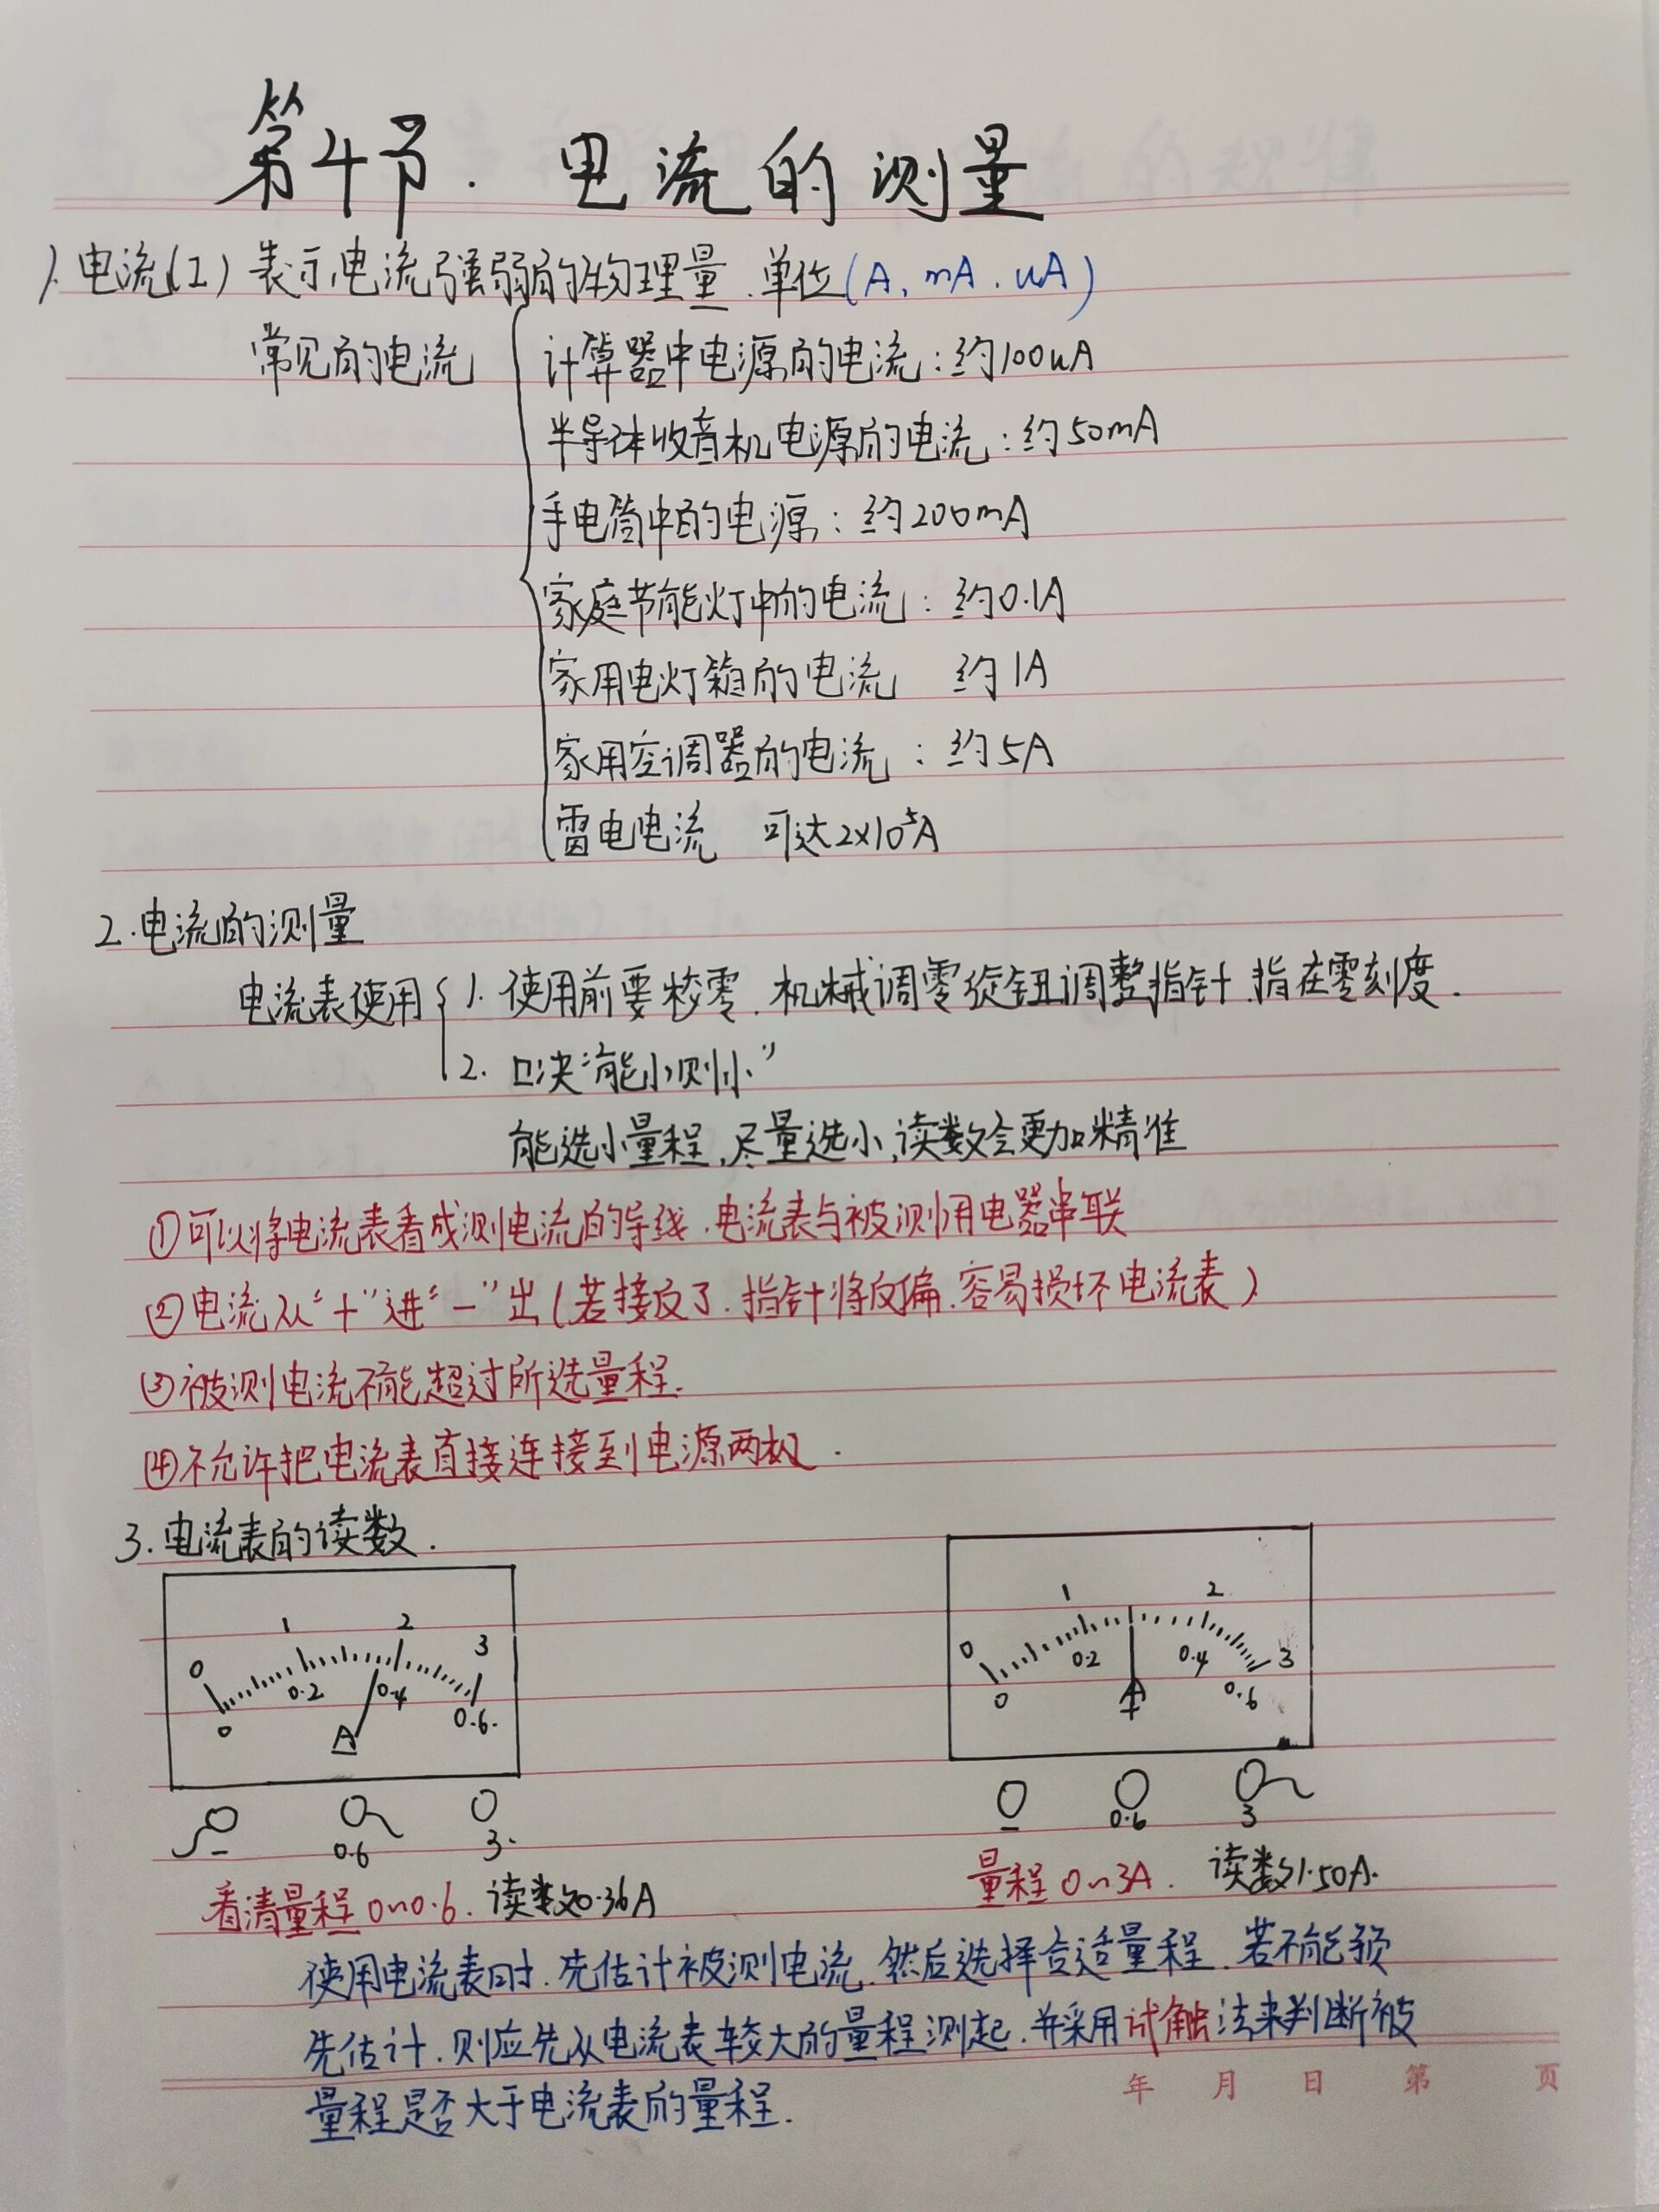 第4节.电流的测量
1.电流(I)表示电流强弱的物理量.单位(A,mA.uA)
常见的电流
计算器中电源的电流:约100uA
半导体收音机电源的电流:约50mA
手电筒中的电源:约200mA
家庭节能灯中的电流:约0.1A
家用电灯箱的电流 约1A
家用空调器的电流:约5A
雷电电流 可达2×10⁵A
2.电流的测量
电流表使用
1.使用前要校零.机械调零旋钮调整指针.指在零刻度.
2.口决“能小则小”
能选小量程,尽量选小,读数会更加精准
①可以将电流表看成测电流的导线.电流表与被测用电器串联
②电流从“+”进“-”出(若接反了.指针将反偏.容易损坏电流表)
③被测电流不能超过所选量程.
④不允许把电流表直接连接到电源两极.
3.电流表的读数.
0 1 2 3
0 0.2 0.4 0.6.
A
- 0.6 3.
看清量程0~0.6.读数为0.36A
0 1 2 3
0 0.2 0.4 0.6
A
- 0.6 3
量程0~3A. 读数为1.50A.
使用电流表时.先估计被测电流.然后选择合适量程.若不能预
先估计.则应先从电流表较大的量程测起.并采用试触法来判断被
量程是否大于电流表的量程.
年 月 日 第 页